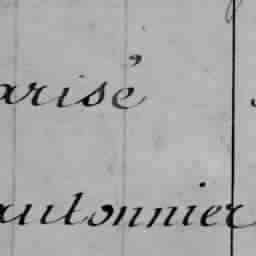 arisé
autonnier